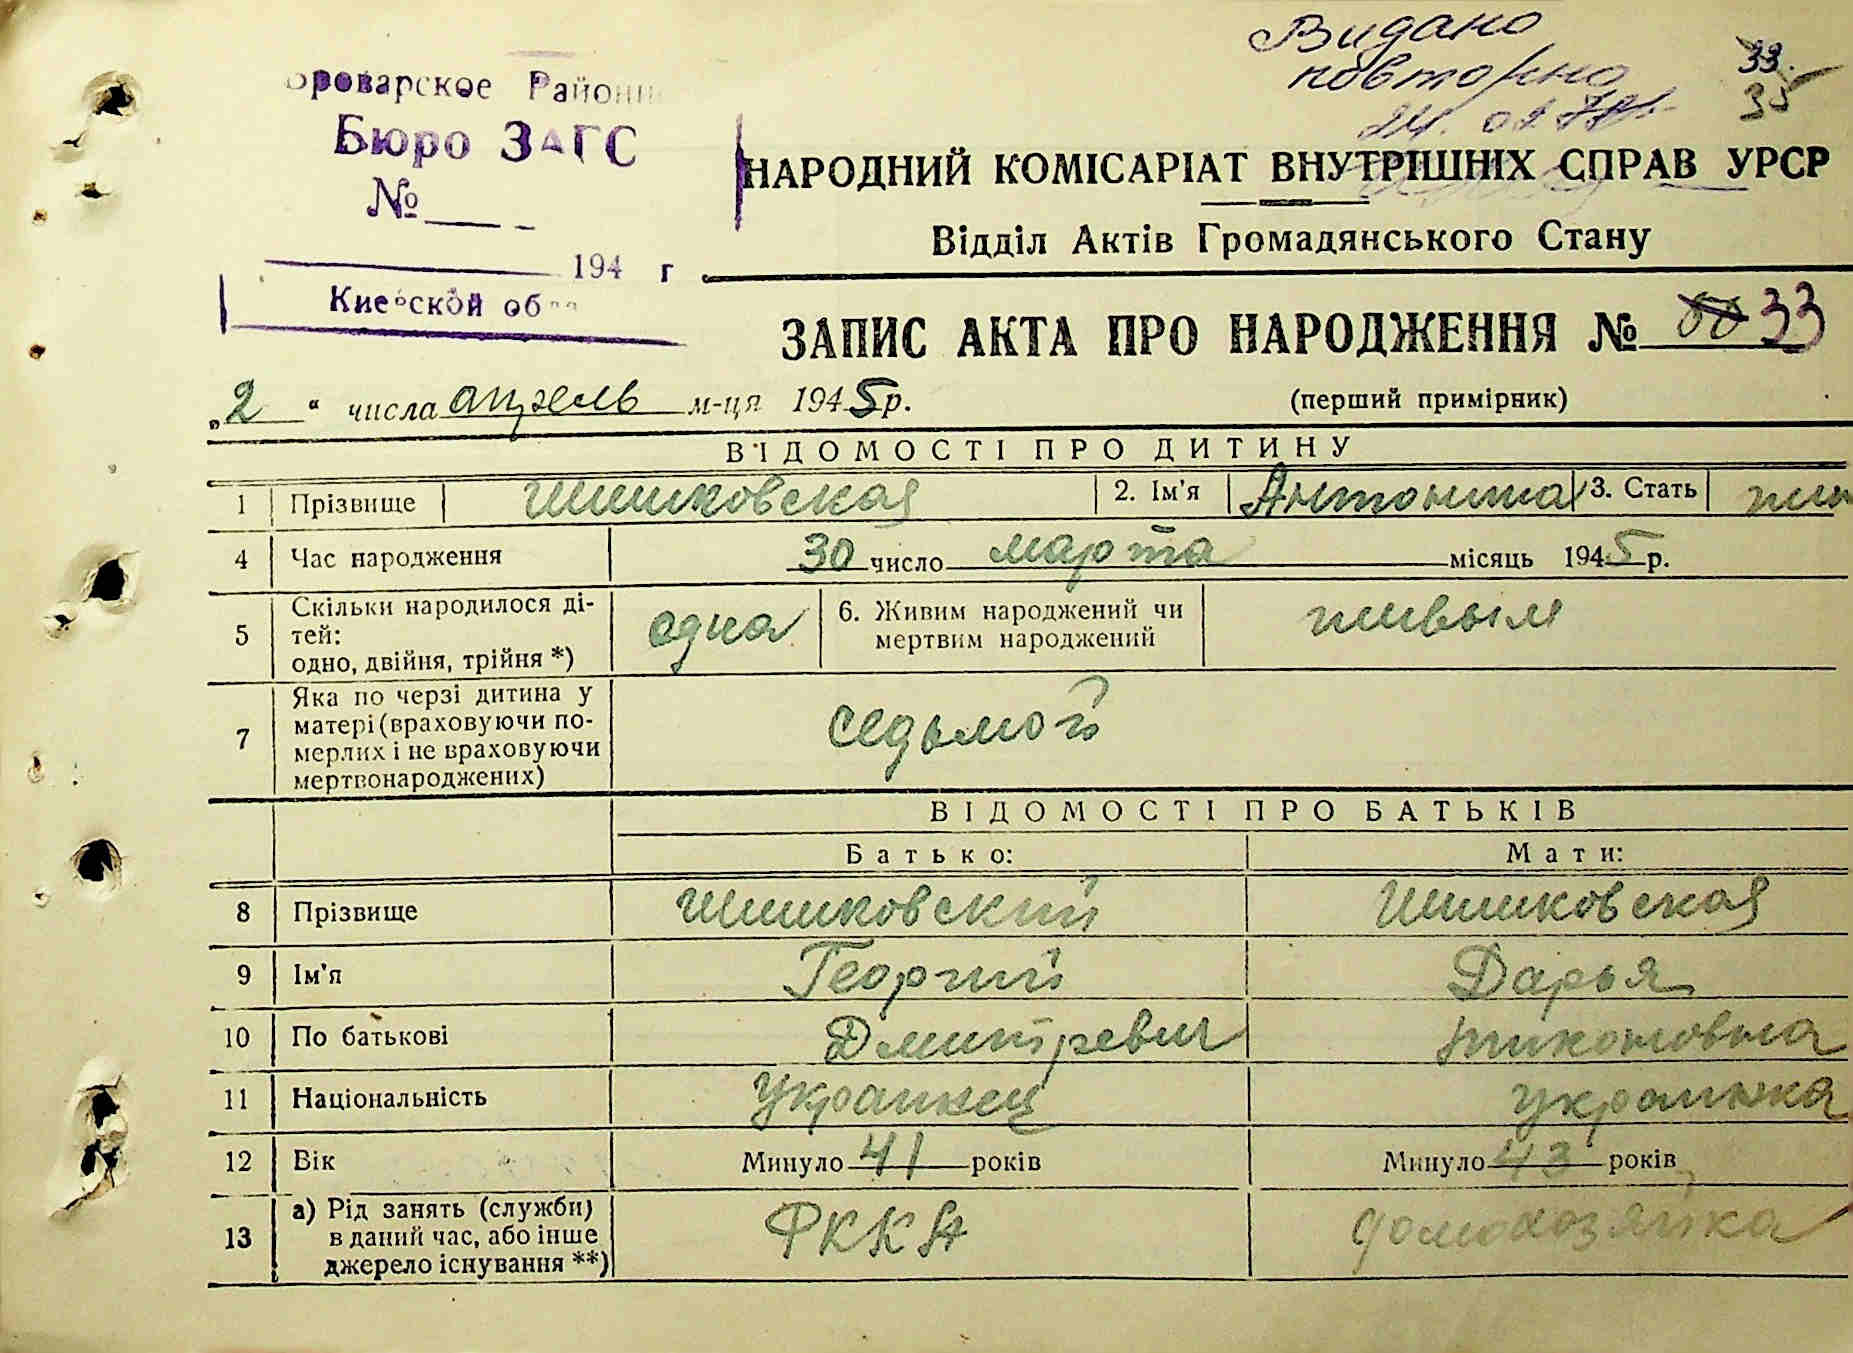 Видано
повторно
24.02.
33.
35
Броварское Районн
Бюро ЗАГС
№
194 г
Киевской об
НАРОДНИЙ КОМІСАРІАТ ВНУТРІШНІХ СПРАВ УРСР
Відділ Актів Громадянського Стану
ЗАПИС АКТА ПРО НАРОДЖЕННЯ № 33
„2“ числа апрель м-ця 1945 р.
(перший примірник)
ВІДОМОСТІ ПРО ДИТИНУ
1 Прізвище Шишковская 2. Ім'я Антонина 3. Стать
4 Час народження 30 число марта місяць 1945 р.
5 Скільки народилося ді-
тей:
одно, двійня, трійня *) одна 6. Живим народжений чи
мертвим народжений живым
7 Яка по черзі дитина у
матері (враховуючи по-
мерлих і не враховуючи
мертвонароджених) седьмой
ВІДОМОСТІ ПРО БАТЬКІВ
Батько: Мати:
8 Прізвище Шишковский Шишковская
9 Ім'я Георгий Дарья
10 По батькові Дмитревич Тихоновна
11 Національність украинец украинка
12 Вік Минуло 41 років Минуло 43 років
13 а) Рід занять (служби)
в даний час, або інше
джерело існування **) РККА домохозяйка